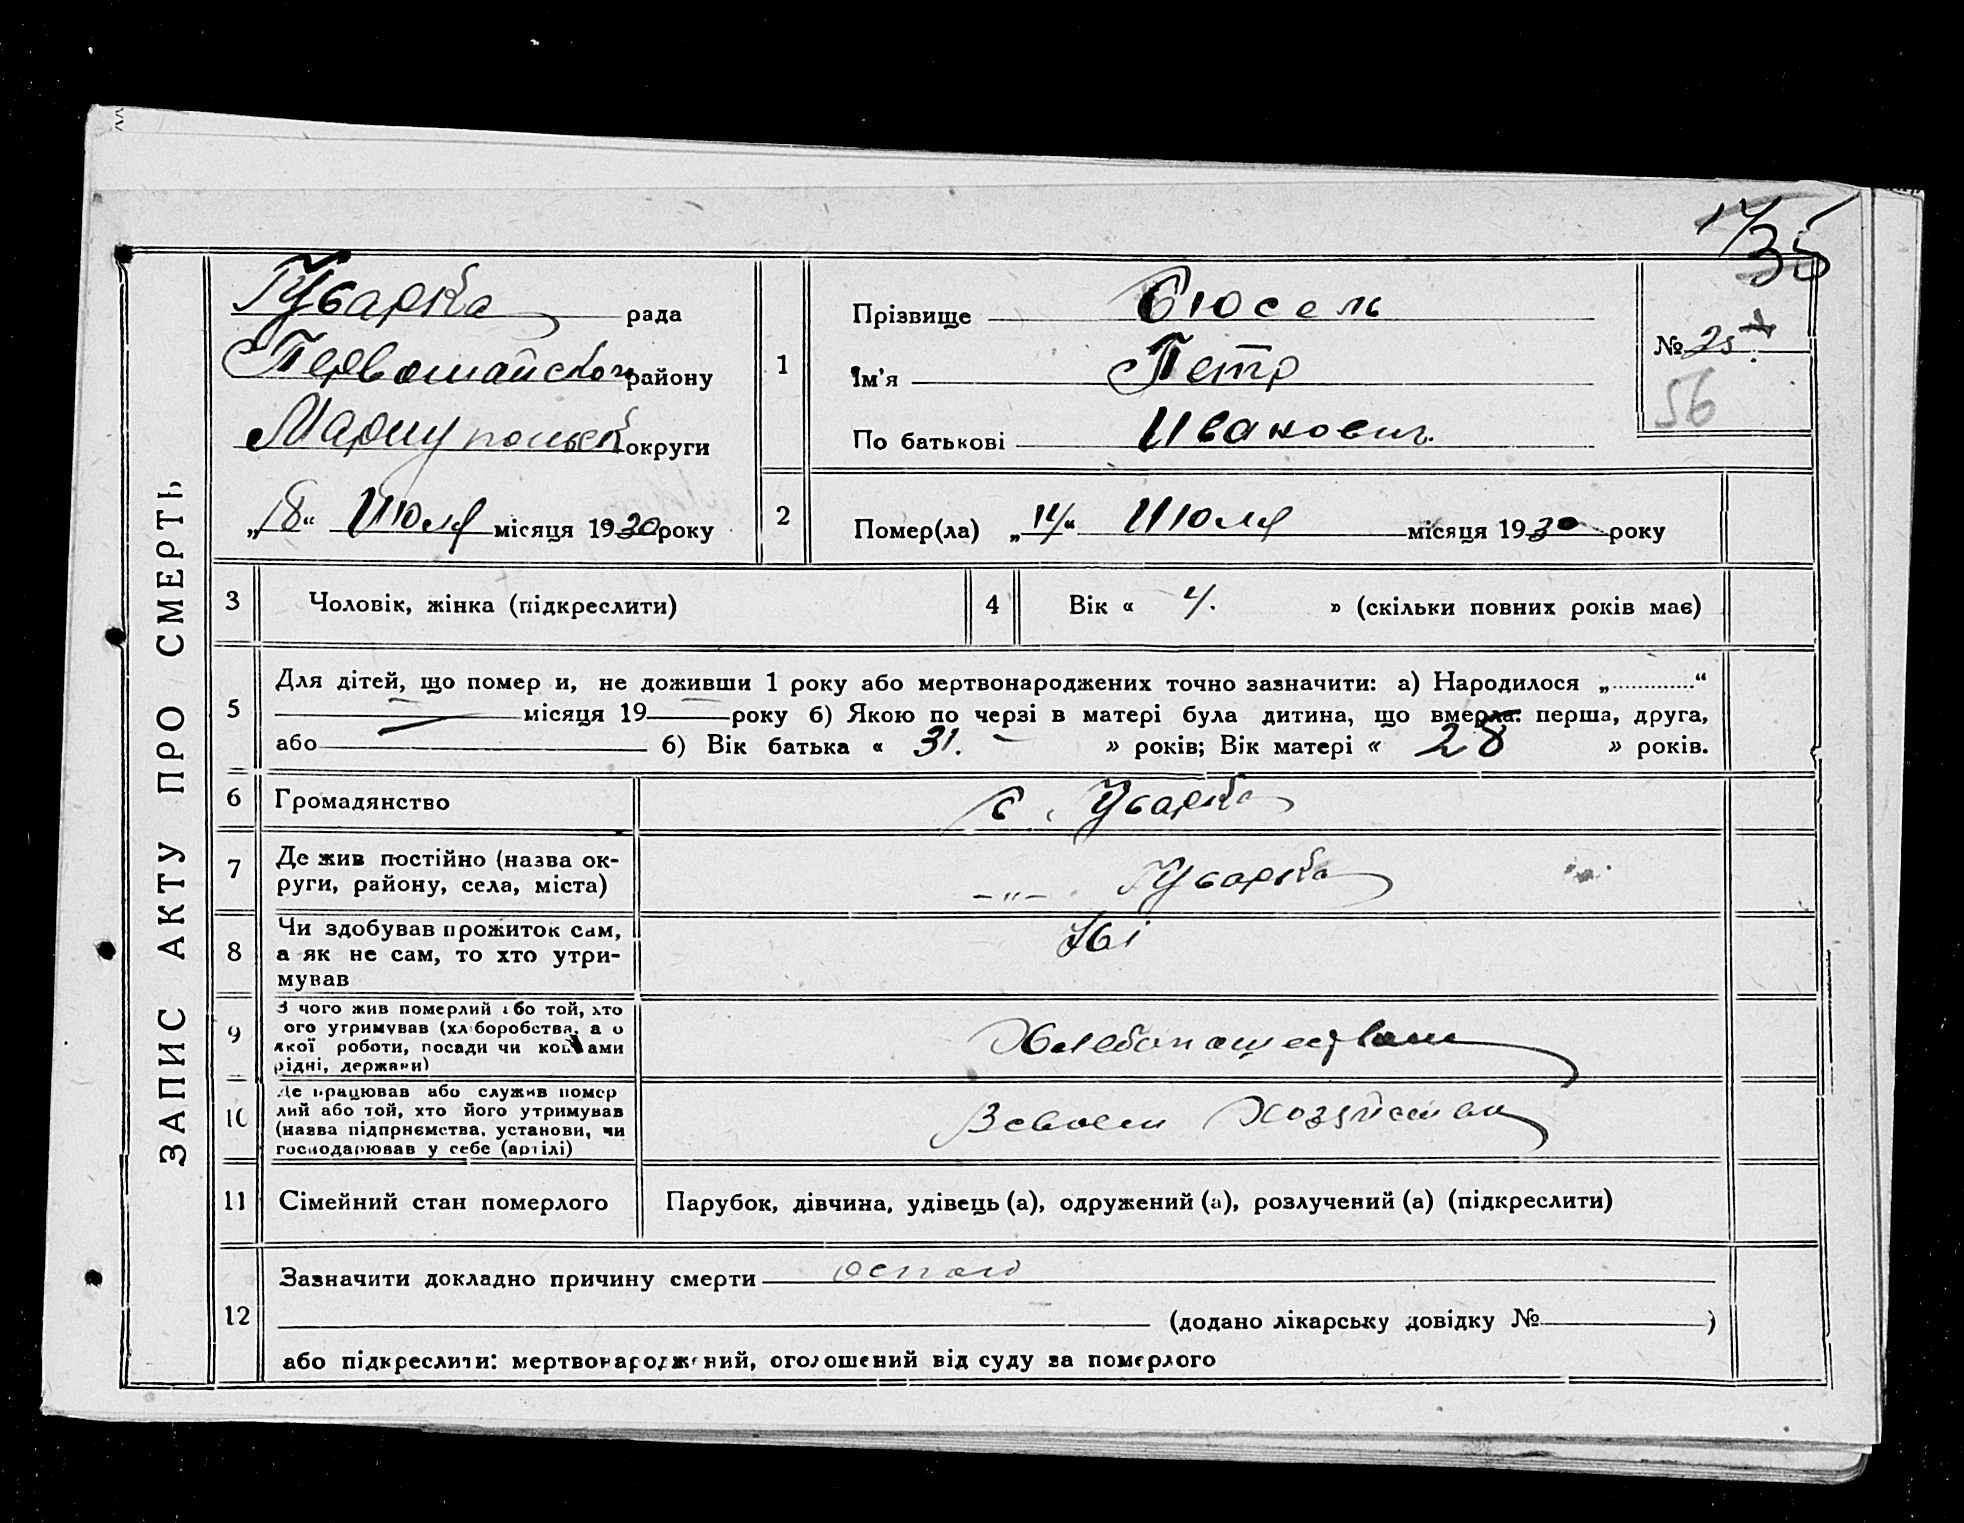 ЗАПИС АКТУ ПРО СМЕРТЬ
17/35
рада
Первомайськ району
Мариупольск округи
„18“ Июля місяця 1930 року
1
Прізвище Сюсель
Ім'я Петр
По батькові Иванович.
№ 25
56
2
Помер(ла) „14“ Июля місяця 1930 року
3 Чоловік, жінка (підкреслити)
4 Вік « 4. » (скільки повних років має)
5
Для дітей, що помер и, не доживши 1 року або мертвонароджених точно зазначити: а) Народилося „ “
місяця 19 року б) Якою по черзі в матері була дитина, що вмерла: перша, друга,
або 6) Вік батька « 31. » років; Вік матері « 28 » років.
6 Громадянство
7 Де жив постійно (назва ок-
руги, району, села, міста) –„–
8 Чи здобував прожиток сам,
а як не сам, то хто утри-
мував
9 З чого жив померлий або той, хто
ого утримував (хліборобства, а о
якої роботи, посади чи коштами
рідні, держави)
Хлебопашеством
10 Де працював або служив помер
лий або той, хто його утримував
(назва підприємства, установи, чи
господарював у себе (артілі)
В своем Хозяйстве
11 Сімейний стан померлого Парубок, дівчина, удівець (а), одружений (а), розлучений (а) (підкреслити)
12
Зазначити докладно причину смерти оспою
(додано лікарську довідку № )
або підкреслити: мертвонароджений, оголошений від суду за померлого